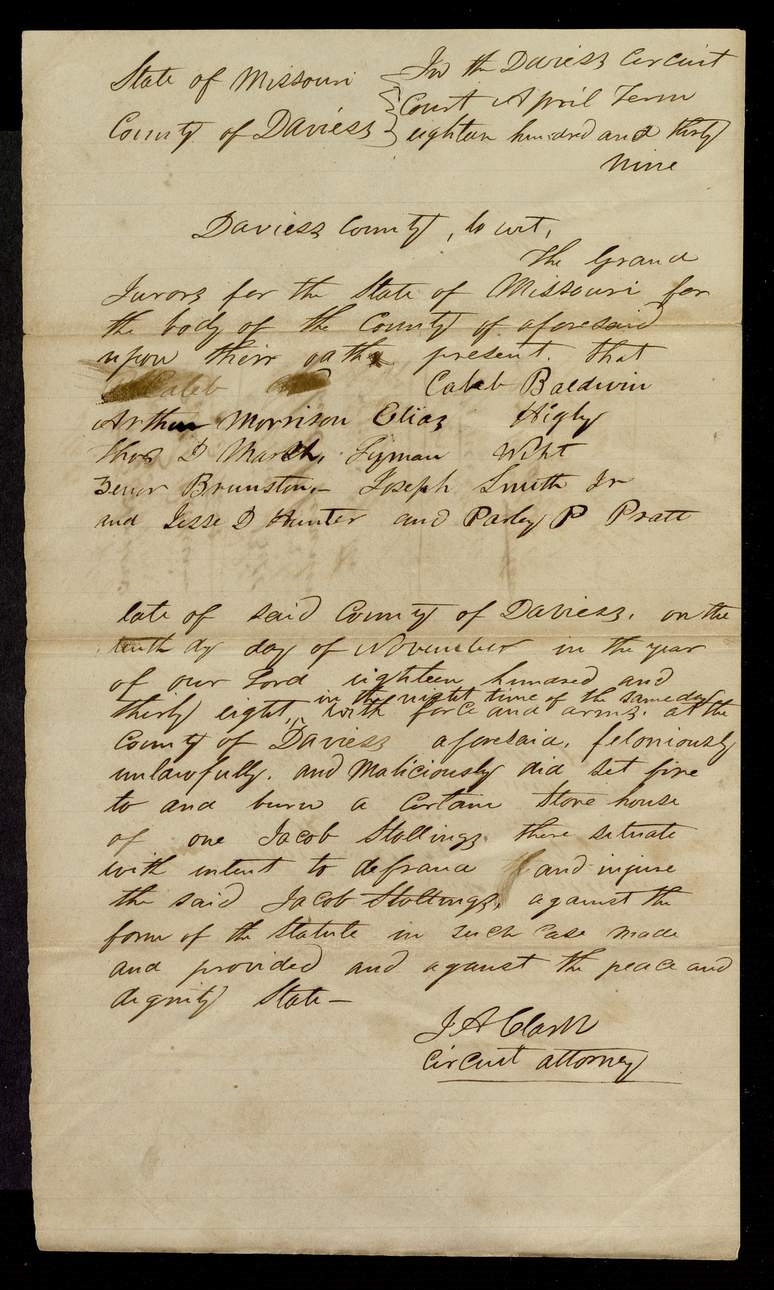 State of Missouri
County of Daviess
In the Daviess Circuit
Court April Term
eighteen hundred and thirty
nine
Daviess County, to wit,
The Grand
Jurors for the State of Missouri for
the body of the County of aforesaid
upon their oaths present. that
Caleb Caleb Baldwin
Arthur Morrison Elias Higby
Thos D Marsh, Lyman Wiht
Zenor Brunston,– Joseph Smith Jr
and Jesse D Hunter and Parley P Pratt
late of said County of Daviess. on the
tenth dy day of November in the year
of our Lord eighteen hundred and
in the night time of the same day
thirty eight, with force and arms. at the
County of Daviess aforesaid, feloniously
unlawfully. and Maliciously did set fire
to and burn a certain Store house
of one Jacob Stollings there situate
with intent to defraud and injure
the said Jacob Stollings, against the
form of the Statute in such case made
and provided and against the peace and
dignity State–
J A Clark
Circuit attorney